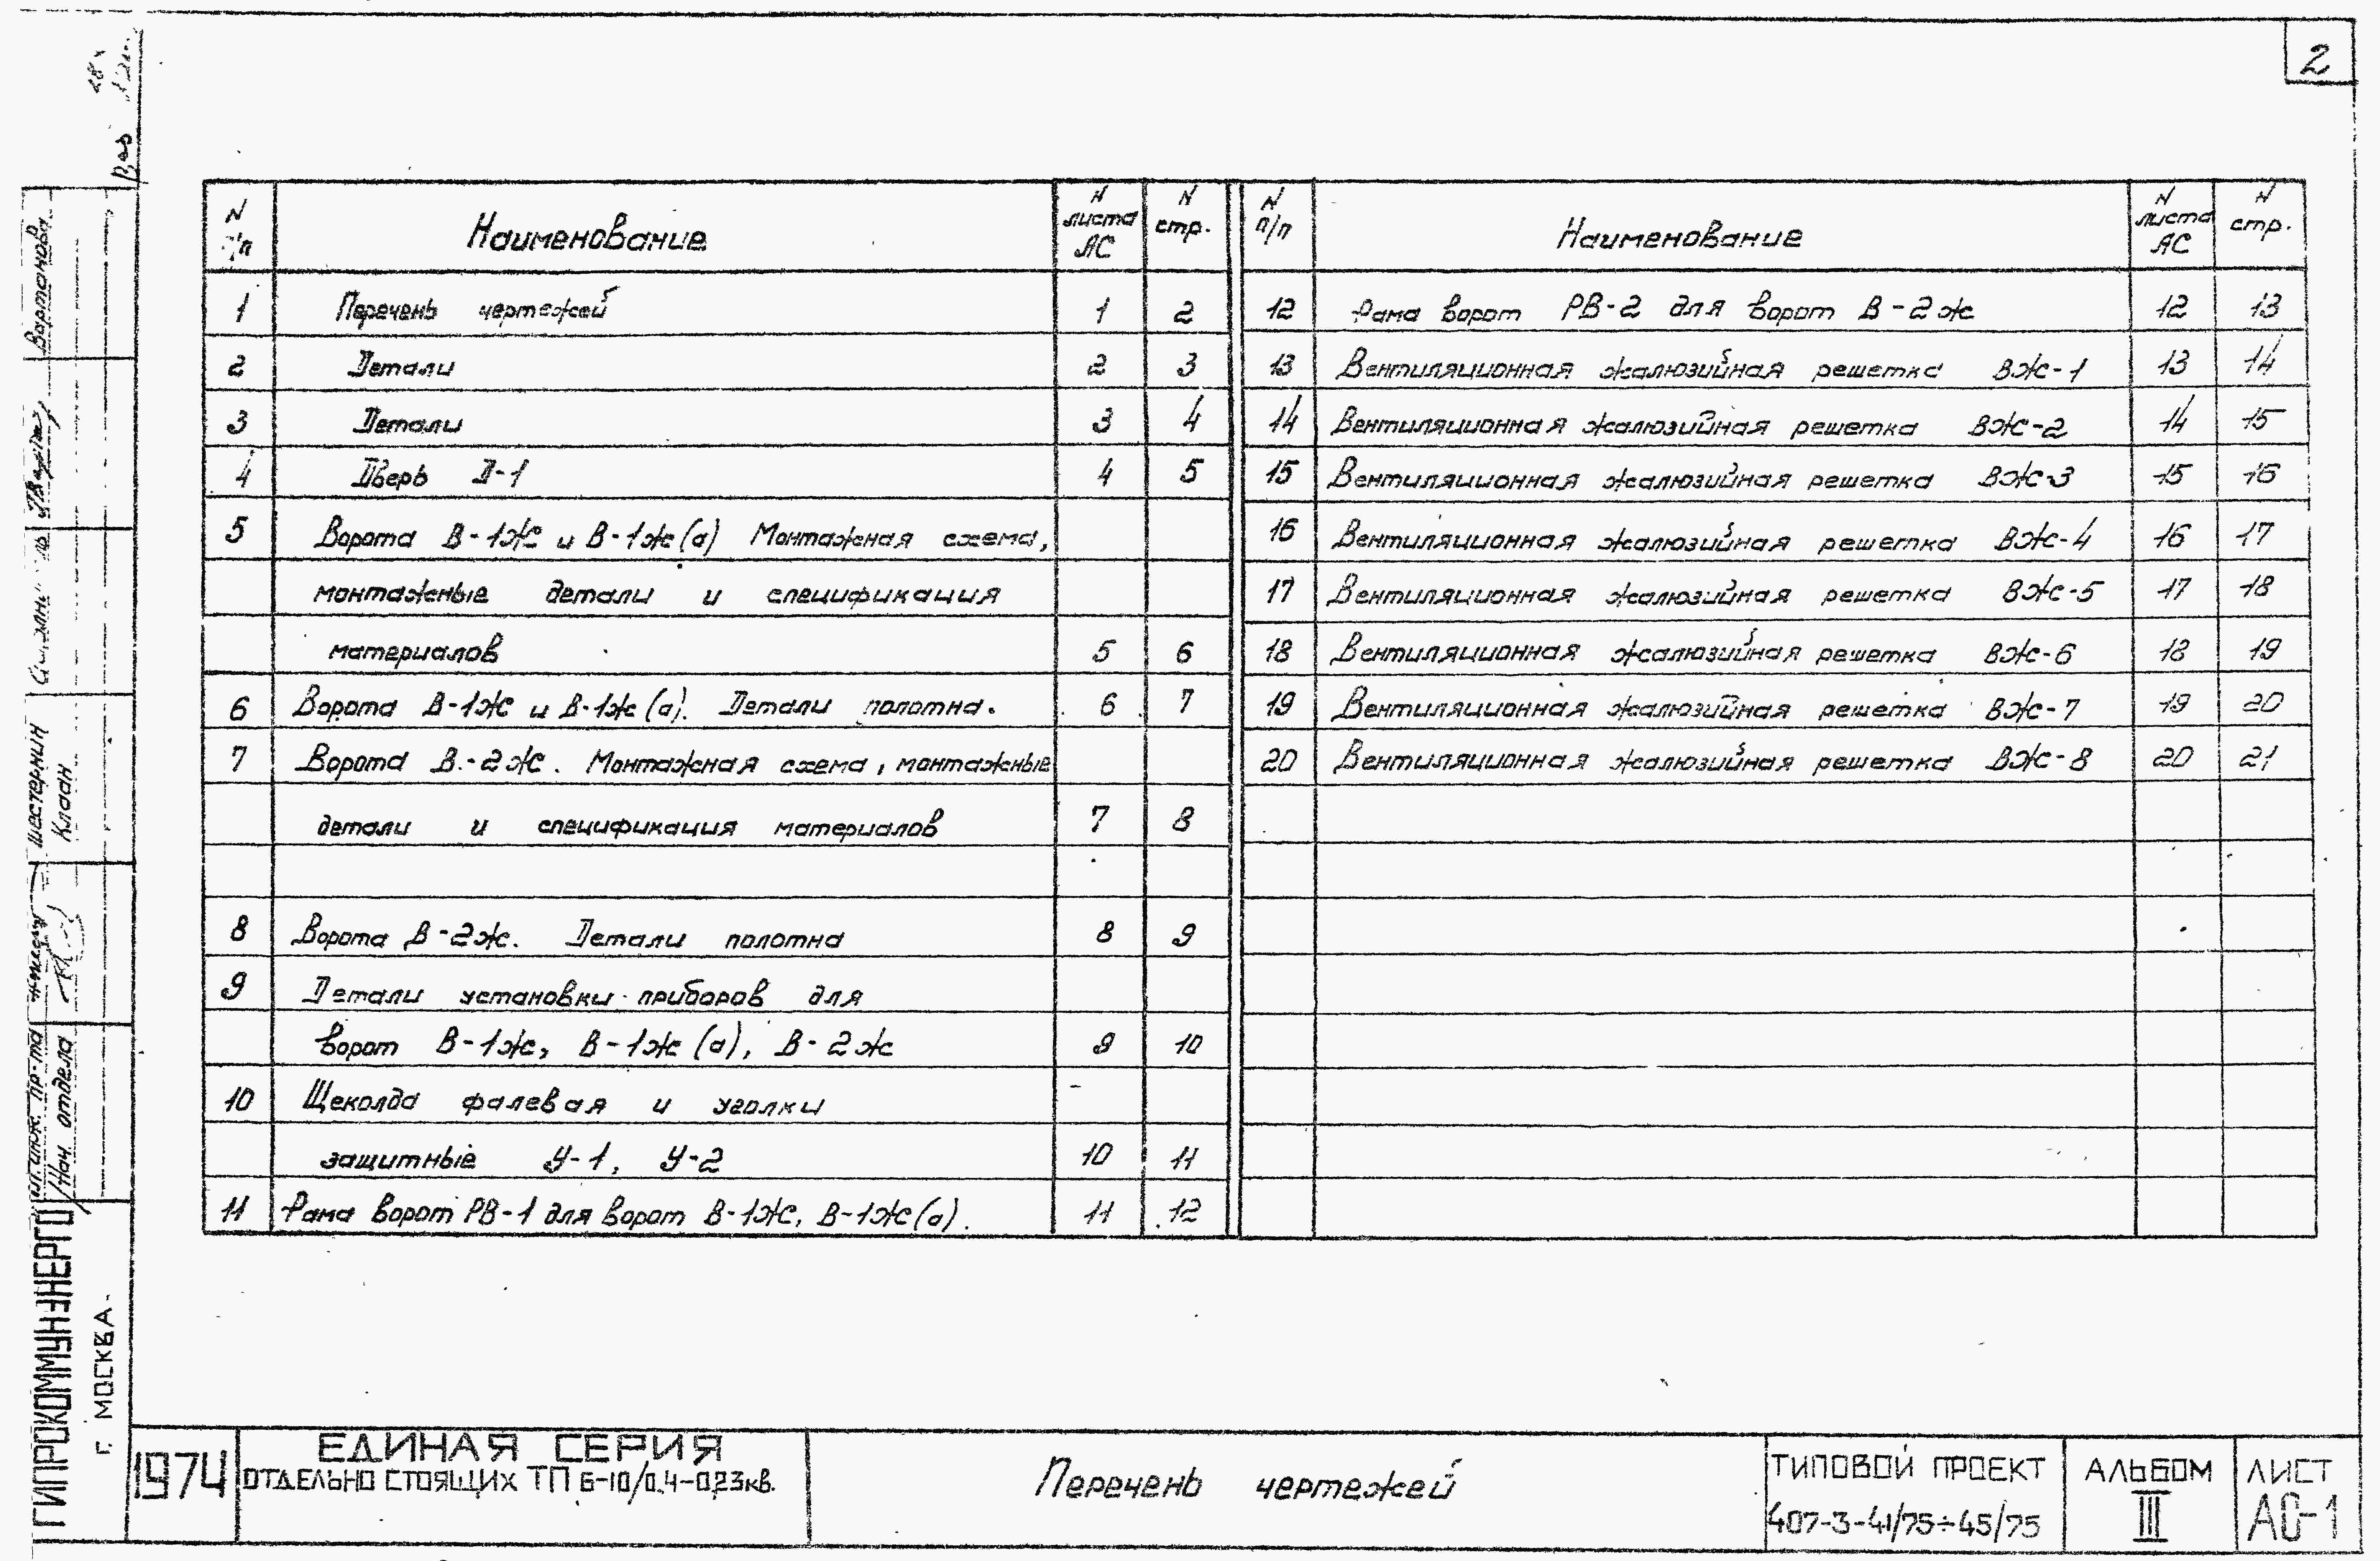 2
N п/п Наименование N листа АС N стр.
1 Перечень чертежей 1 2
2 Детали 2 3
3 Детали 3 4
4 Дверь Д-1 4 5
5 Ворота В-1Ж и В-1Ж(а) Монтажная схема,
монтажные детали и спецификация
материалов 5 6
6 Ворота В-1Ж и В-1Ж(а). Детали полотна. 6 7
7 Ворота В-2Ж. Монтажная схема, монтажные
детали и спецификация материалов 7 8
8 Ворота В-2Ж. Детали полотна 8 9
9 Детали установки приборов для
ворот В-1Ж, В-1Ж(а), В-2Ж 9 10
10 Щеколда фалевая и уголки
защитные У-1, У-2 10 11
11 Рама ворот РВ-1 для ворот В-1Ж, В-1Ж(а). 11 12
N п/п Наименование N листа АС N стр.
12 Рама ворот РВ-2 для ворот В-2Ж 12 13
13 Вентиляционная жалюзийная решетка ВЖ-1 13 14
14 Вентиляционная жалюзийная решетка ВЖ-2 14 15
15 Вентиляционная жалюзийная решетка ВЖ-3 15 16
16 Вентиляционная жалюзийная решетка ВЖ-4 16 17
17 Вентиляционная жалюзийная решетка ВЖ-5 17 18
18 Вентиляционная жалюзийная решетка ВЖ-6 18 19
19 Вентиляционная жалюзийная решетка ВЖ-7 19 20
20 Вентиляционная жалюзийная решетка ВЖ-8 20 21
ГИПРОКОММУНЭНЕРГО
г. МОСКВА
Гл. инж. пр-та Шестернин
Нач. отдела Клаан
Вартанова
1974
ЕДИНАЯ СЕРИЯ
ОТДЕЛЬНО СТОЯЩИХ ТП 6-10/0,4-0,23кв.
Перечень чертежей
ТИПОВОЙ ПРОЕКТ
407-3-41/75÷45/75
АЛЬБОМ
III
ЛИСТ
АС-1